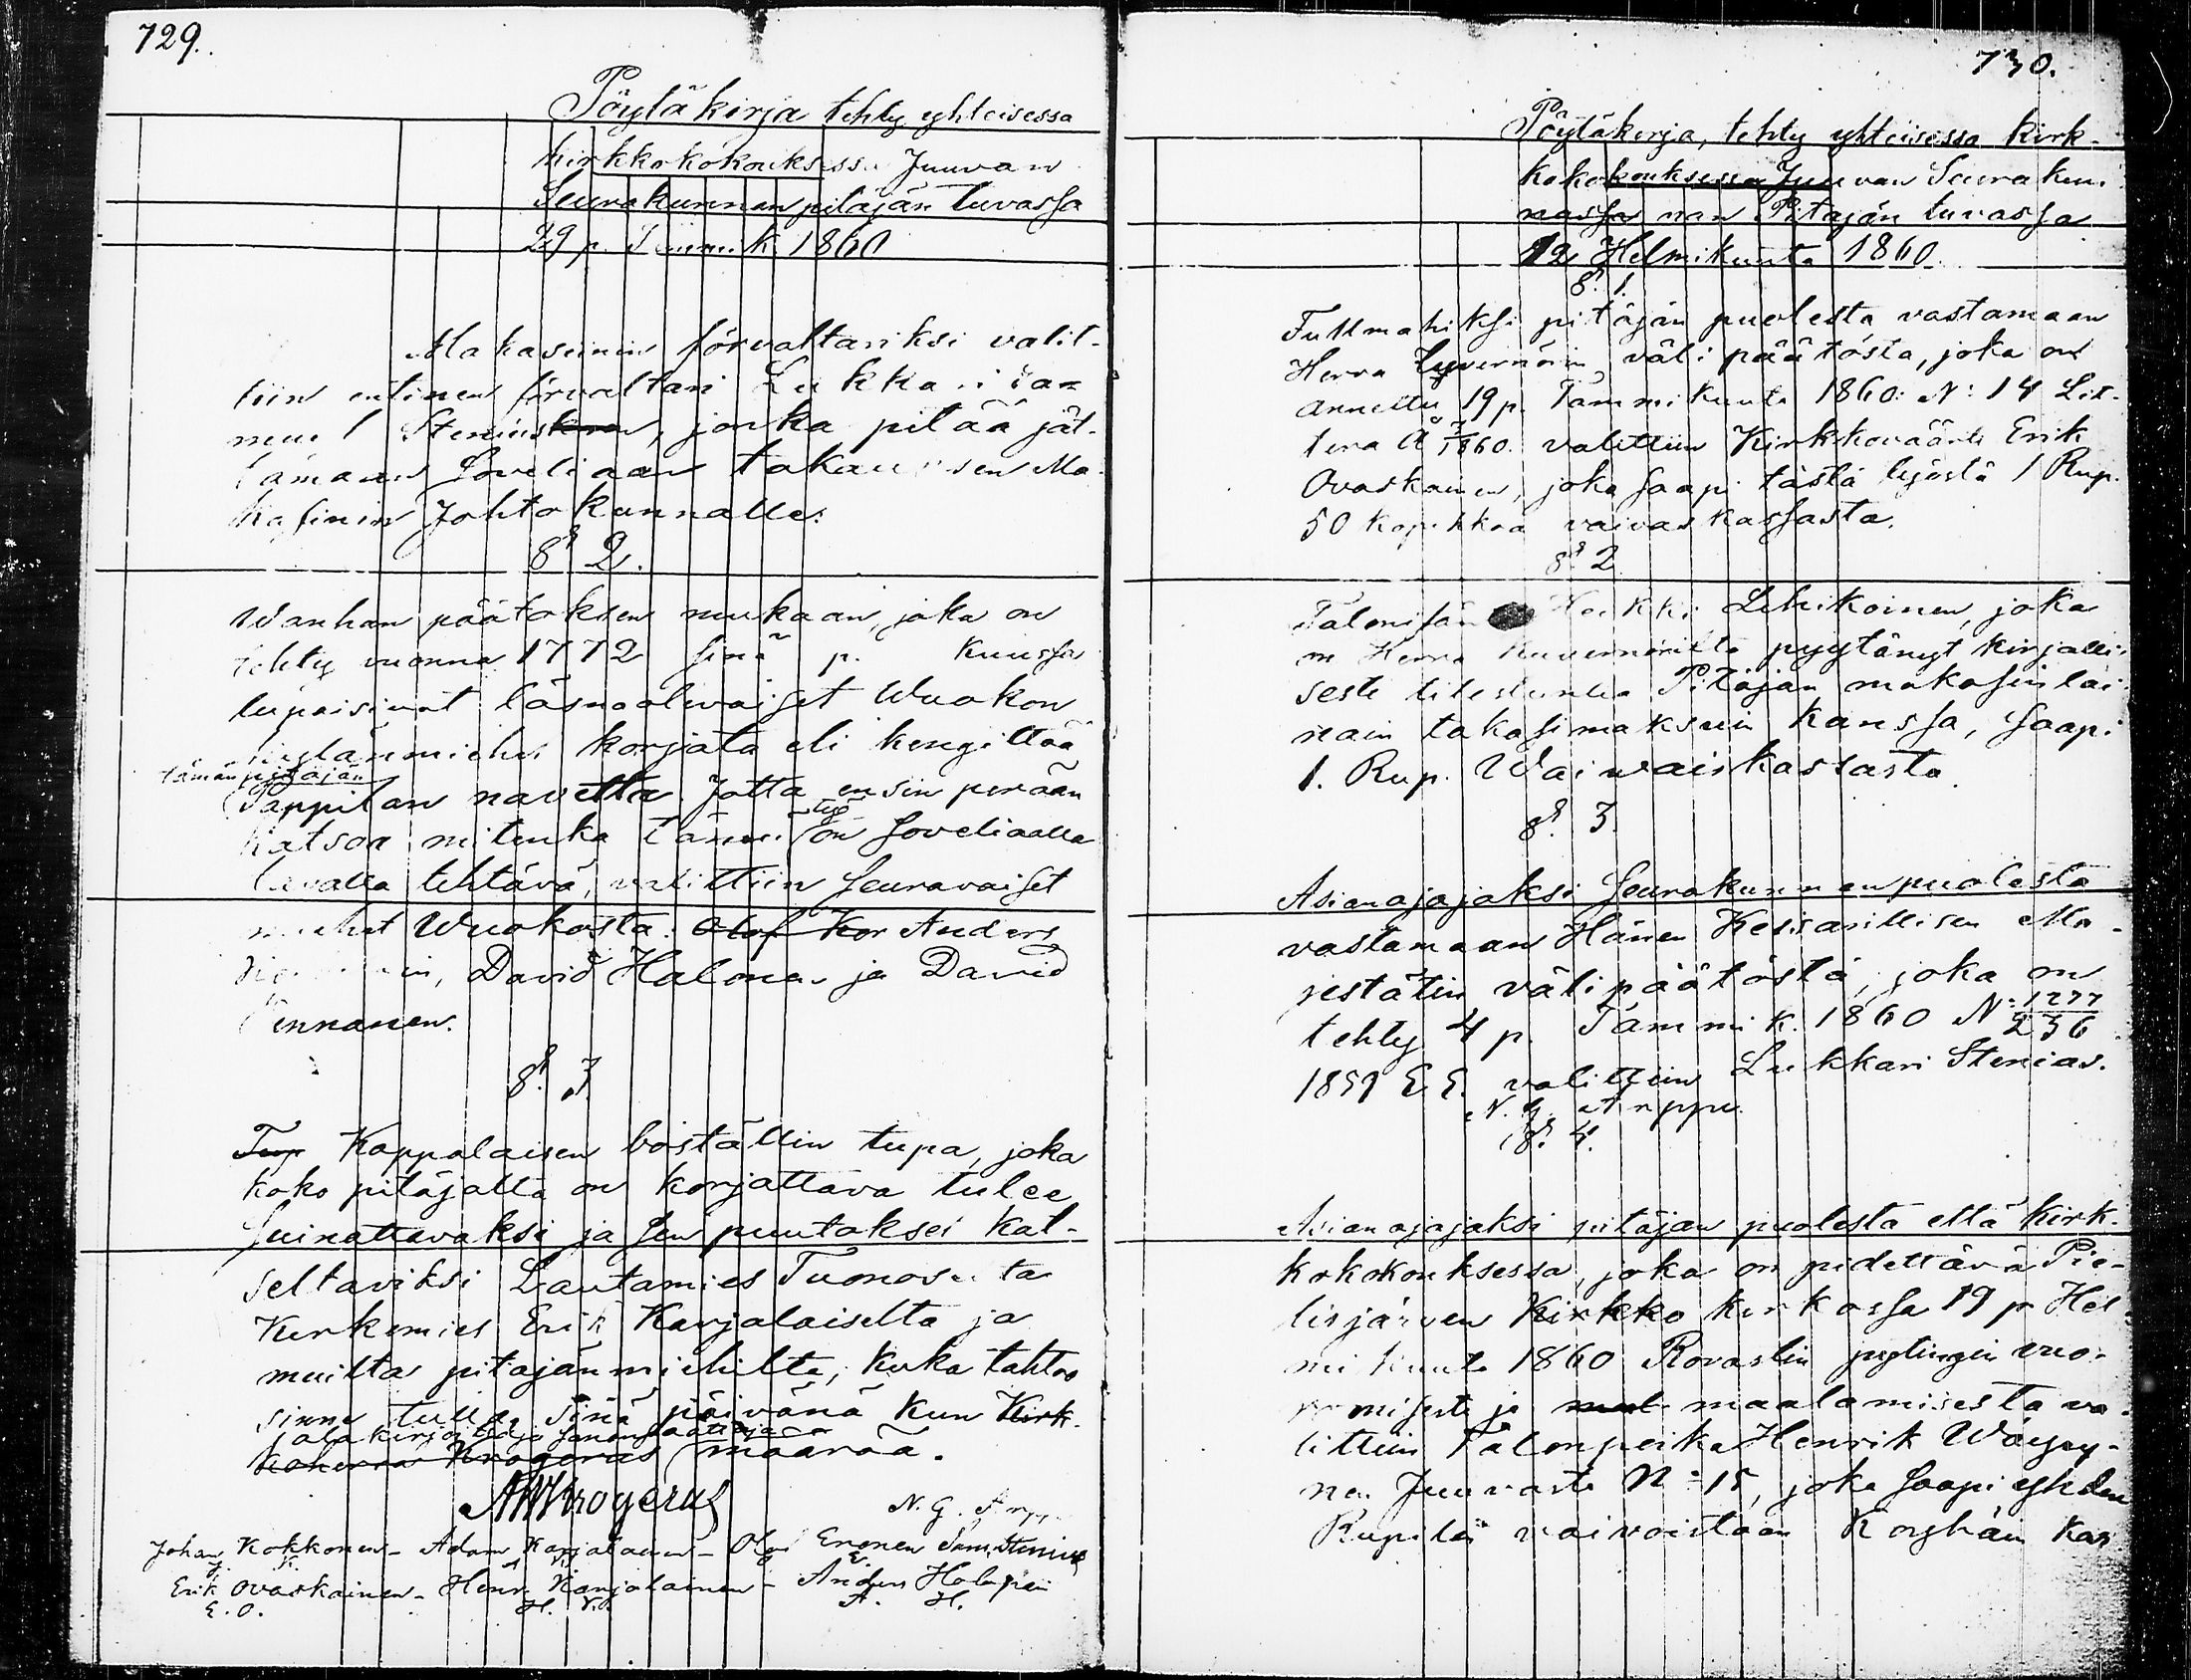 729.
Pöytäkirja tehty yhteisessa
kirkkokokouksessa Juuvan
Seurakunnan pitäjän tuvassa
29 p. Tammik. 1860
Makaseinin förvaltariksi valit-
tiin entinen förvaltari Lukkari
Stenius, jonka pitää jät-
tämänn soveliaan takauksen Ma-
kasinin Johtokunnalle.
§ 2.
Wanhan päätöksen mukaan, joka on
tehty vuonna 1772 sinä p. kuussa
lupaisivat läsnäolevaiset Wuokon
kylänmiehet korjata eli kengittää
tämän pitäjän
Pappilan navetta. Jotta ensin perään
katsoa mitenkä tämä työ on soveliaalla
tavalla tehtävä, valittiin seuravaiset
miehet Wuokosta: Olof Kor Anders
David Halonen ja David
Pennanen.
§ 3
Tup Kappalaisen böställin tupa, joka
koko pitäjältä on korjattava tulee
seinattavaksi ja sen puutokset kat-
seltaviksi Lautamies
Kirkemies Erik Karjalaiselta ja
muilta pitäjänmiehiltä, kuka tahtoo
sinne tulla, sinä päivänä kun Kirk-
kokerra Krogerus määrää.
AWKrogerus
N. G. Arppe
Johan Kokkonen - Adam Karjalainen - Olof Eronen Sam. Stenius
J. K. A. K. E.
Erik Ovaskainen - Henr. Karjalainen - Anders Holopain
E. O. H. K. A. H.
730.
Pöytäkirja, tehty yhteisessa Kirk-
kokokouksessa Juuvan Seurakun-
nassa nan Pitäjän tuvassa
12 Helmikuuta 1860.
§ 1.
Fullmahiksi pitäjän puolesta vastamaan
Herra kyvernörin väli päätöstä, joka on
annettu 19 p. Tammikuuta 1860: N: 14 Lit-
tera A 1860. valittiin Kirkkoväärti Erik
Ovaskainen, joka saapi tästä työstä 1 Rup.
50 kopekkaa vaivaskassasta.
§ 2
Talonisän Heikki Lehikoinen, joka
on Herra kuvernöriltä pyytänyt kirjalli-
sesti Pitäjän makasin lai-
nain takasimaksun kanssa, saapi
1. Rup. Waiwaiskassasta.
§ 3.
Asianajajaksi Seurakunnan puolesta
vastamaan Hänen Keisarillisen Ma-
jestätin välipäätöstä, joka on
tehty 4 p. Tammik. 1860 N: 1277/236
1859 E E. valittiin Lukkari Stenius.
N. G. Arppe.
§ 4.
Asianajajaksi pitäjän puolesta että kirk-
kokokouksessa, joka on pidettävä Pie-
lisjärven Kirkko kirkossa 19 p Hel-
mikuuta 1860 Rovastin pytingin vuo-
ja maalamisesta va-
littiin Talonpoika Henrik Wäysy-
nen Juuvasta N: 15, joka saapi yhden
Ruplan vaivaistaan